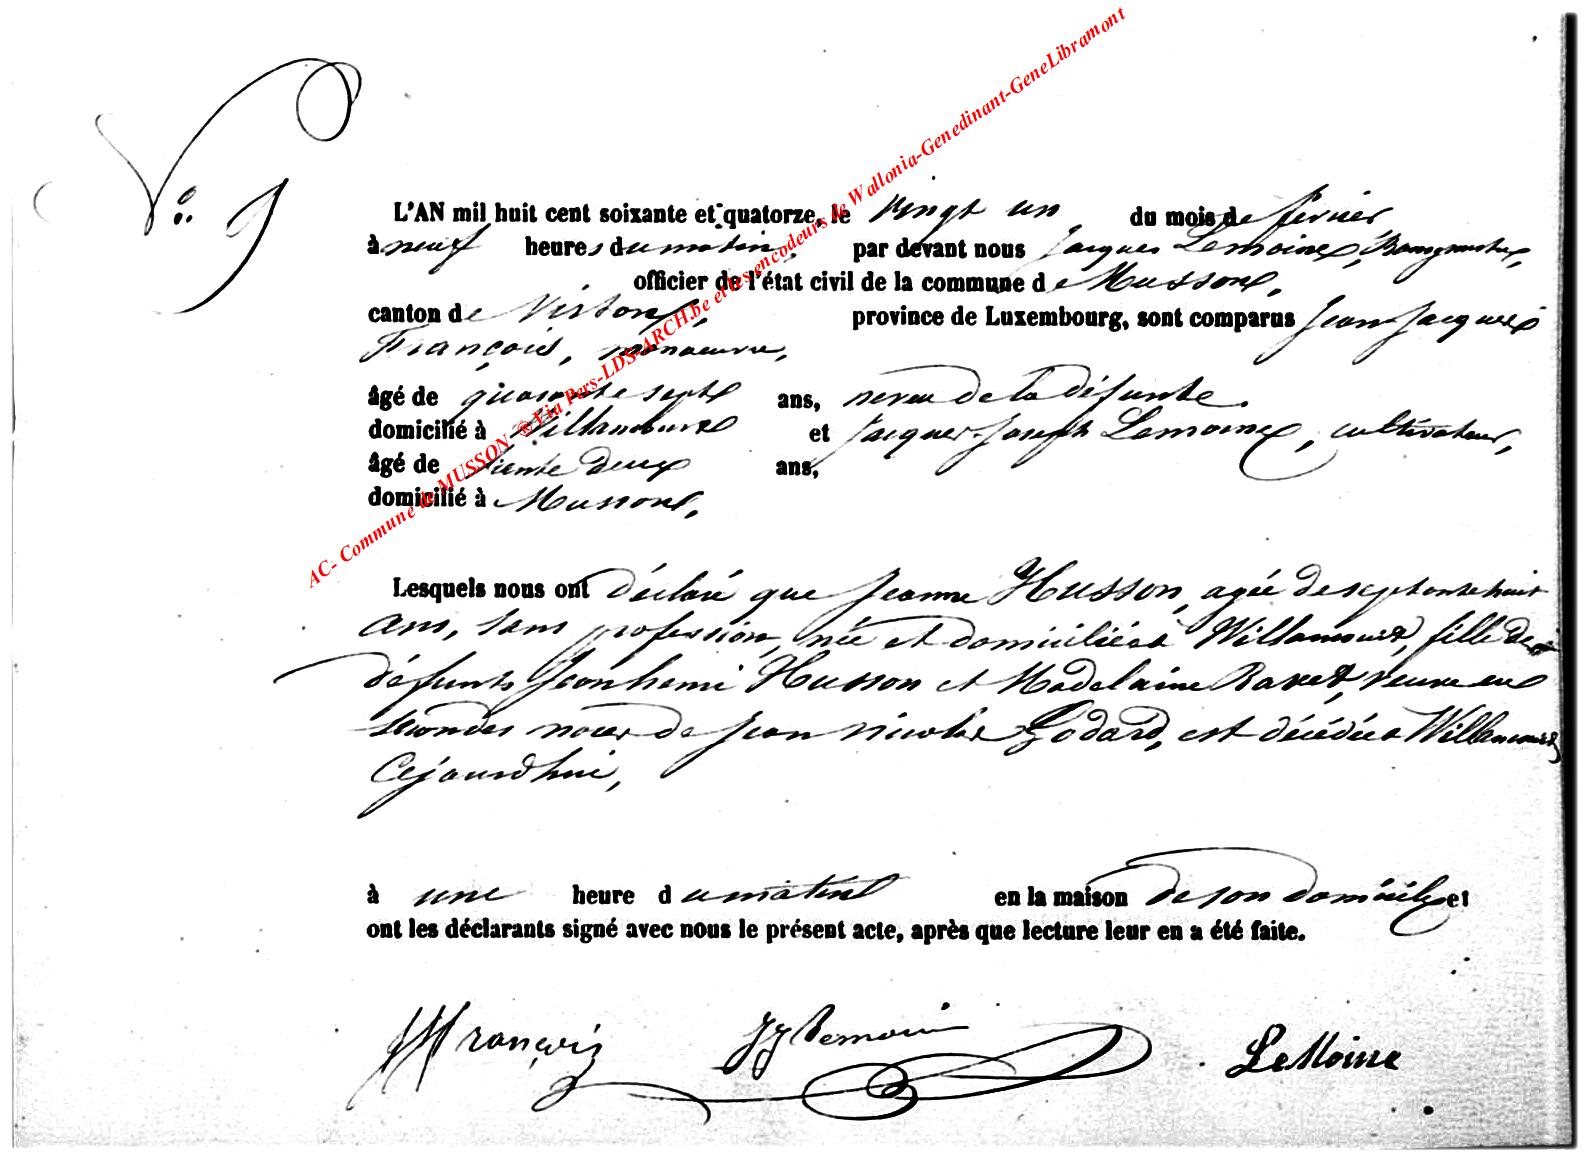 N° 9
L'AN mil huit cent soixante et quatorze, le vingt un du mois de février
à neuf heures du matin, par devant nous Jacques Lemoine, Bourgmestre,
officier de l'état civil de la commune de Musson,
canton de Virton, province de Luxembourg, sont comparus Jean Jacques
François, manoeuvre,
âgé de quarante sept ans, neveu de la défunte.
domicilié à Willancourt et Jacques Joseph Lemoine, cultivateur,
âgé de trente deux ans,
domicilié à Musson,
Lesquels nous ont déclaré que Jeanne Husson, agée de septante huit
ans, sans profession, née et domiciliée à Willancourt, fille de
défunts Jean henri Husson et Madelaine Ravet, veuve en
secondes noces de Jean nicolas Godard, est décédée à Willancourt
Cejourd'hui,
à une heure du matin en la maison de son domicile et
ont les déclarants signé avec nous le présent acte, après que lecture leur en a été faite.
JJ François JJ Lemoine LeMoine
AC- Commune de MUSSON- ®Via Pers-LDS-ARCH.be et les encodeurs de Wallonia-Genedinant-GeneLibramont